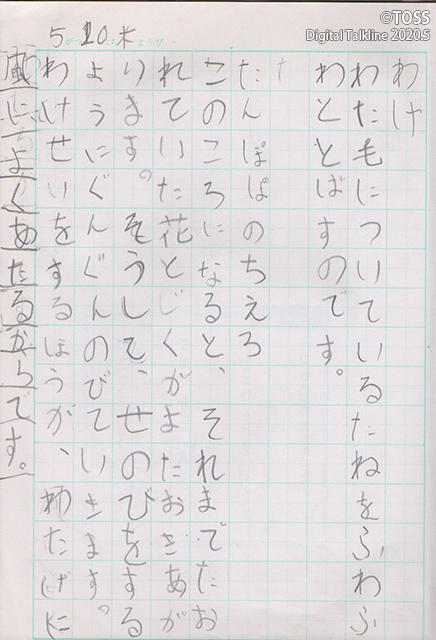 ©TOSS
Digital Talkline 2020.5
5 10 木
わけ
わた毛についているたねをふわふ
わととばすのです。
たんぽぽのちえろ
このころになると、それまでたお
れていた花とじくがまたおきあが
ります。そうして、せのびをする
ようにぐんぐんのびていきます。
わけせいをするほうが、わたげに
風によくあたるからです。